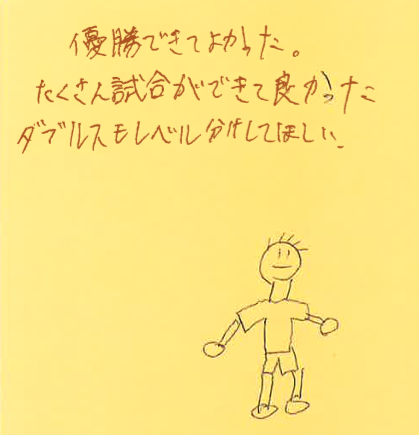 優勝できてよかった。
たくさん試合ができて良かった
ダブルスもレベル分けしてほしい。